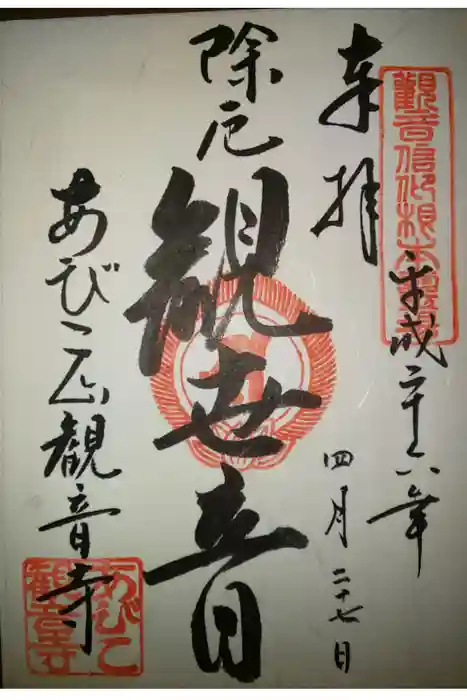 奉拝
観音信仰根本霊場
平成二十六年
四月二十七日
除厄
観世音
あびこ山観音寺
あびこ
観音寺